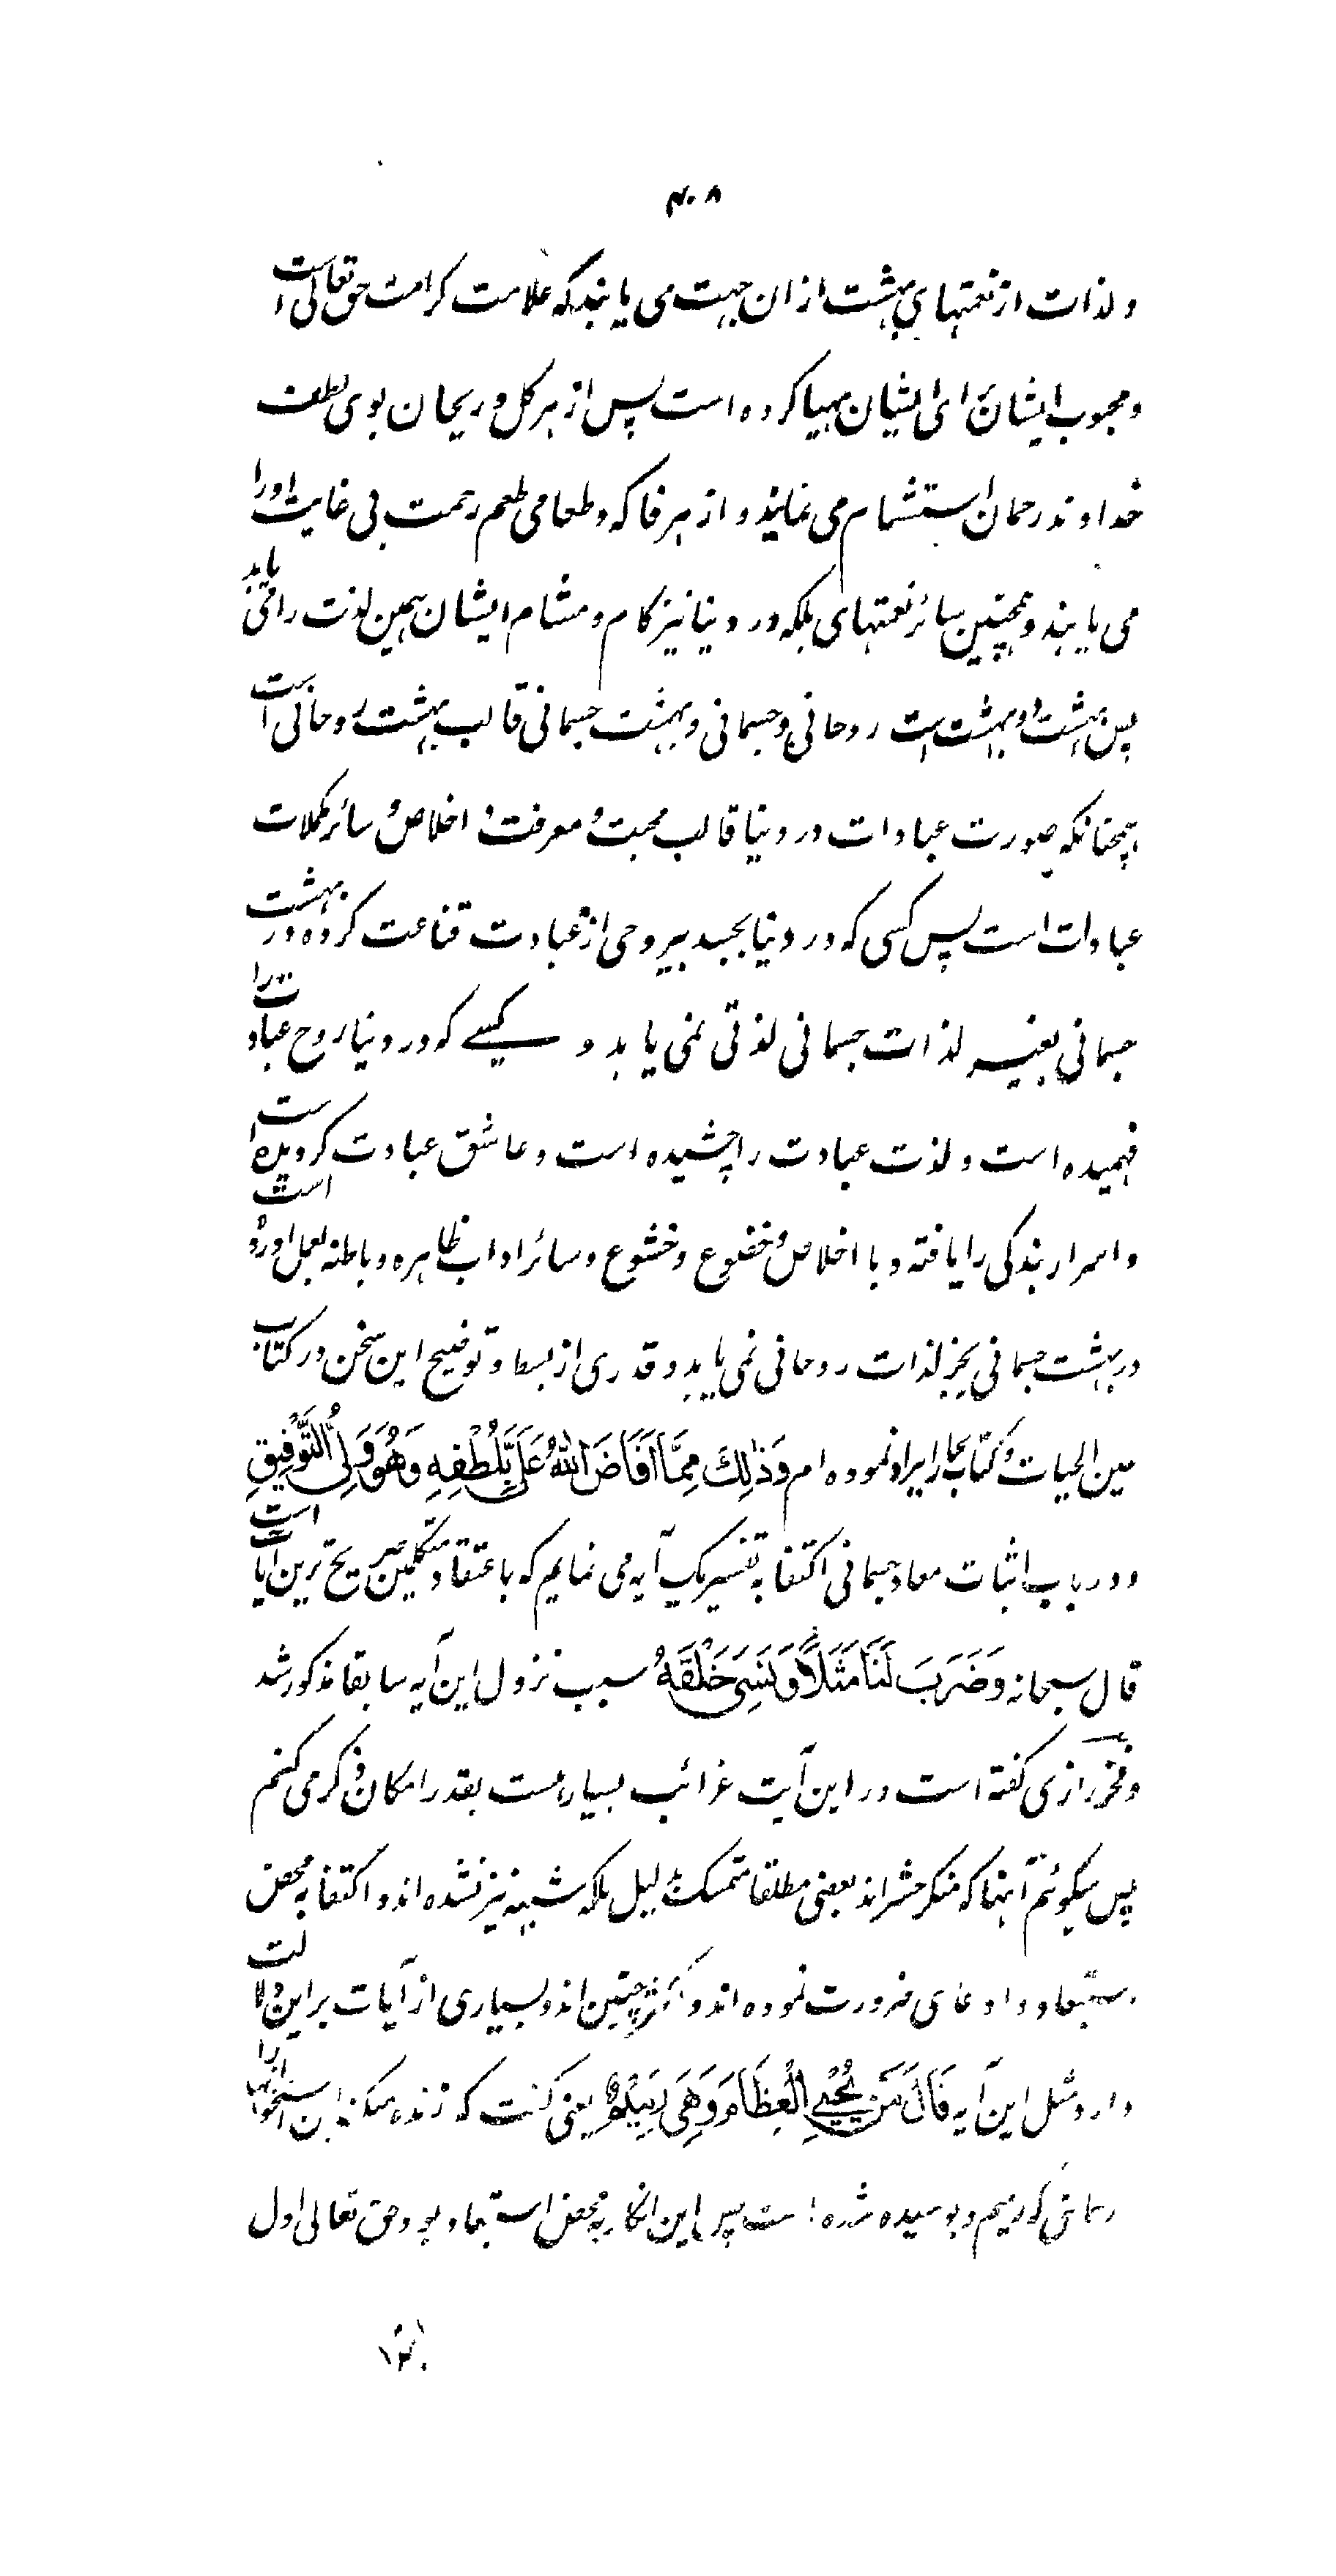 ۴۰۸
و لذات از نعمتهای بهشت ازان جهت می یابند که علامت کرامت حق تعالی است
و محبوب ایشان برای ایشان مهیا کرده است پس از هر گل و ریحان بوی لطف
خداوند رحمان استشمام می نمایند و از هر فاکهه و طعامی طعم رحمت بی غایت او را
می یابند و همچنین سائر نعمتهای بلکه در دنیا نیز کام و مشام ایشان همین لذت را می یابد
پس بهشت دو بهشت است روحانی و جسمانی و بهشت جسمانی قالب بهشت روحانی است
همچنانکه صورت عبادات در دنیا قالب محبت و معرفت و اخلاص و سائر مکملات
عبادات است پس کسی که در دنیا بجسد بیروحی از عبادت قناعت کرده در بهشت
جسمانی بغیر لذات جسمانی لذتی نمی یابد و کسیے که در دنیا روح عبادت را
فهمیده است و لذت عبادت را چشیده است و عاشق عبادت گردیده است
و اسرار بندگی را یافته و با اخلاص و خضوع و خشوع و سائر اداب ظاهره و باطنه بعمل اورده است
در بهشت جسمانی بجز لذات روحانی نمی یابد و قدری از بسط و توضیح این سخن در کتاب
عین الحیات و کتاب بحار ایراد نموده ام وَذٰلِكَ مِمَّا اَفَاضَ اللّٰهُ عَلَیَّ بِلُطْفِهِ وَهُوَ وَلِیُّ التَّوْفِیقِ
و در باب اثبات معاد جسمانی اکتفا به تفسیر یک آیه می نمایم که باعتقاد متکلمین صریح ترین آیات است
قال سبحانه وَضَرَبَ لَنَا مَثَلًا وَنَسِیَ خَلْقَهُ سبب نزول این آیه سابقا مذکور شد
و فخر رازی گفته است در این آیت غرائب بسیار هست بقدر امکان ذکر می کنم
پس میگوئم آنها که منکر حشر اند بعضی مطلقا متمسک بدلیل بلکه شبهه نیز نشده اند و اکتفا به محض
استبعاد و ادعای ضرورت نموده اند و اکثر چنین اند و بسیاری از آیات بر این دلالت
دارد مثل این آیه قَالَ مَنْ یُحْیِی الْعِظَامَ وَهِیَ رَمِیمٌ یعنی گفت که زنده میکند این استخوانها را
زمانی که رمیم و بوسیده شده است پس این انکار به محض استبعاد بود و حق تعالی اول